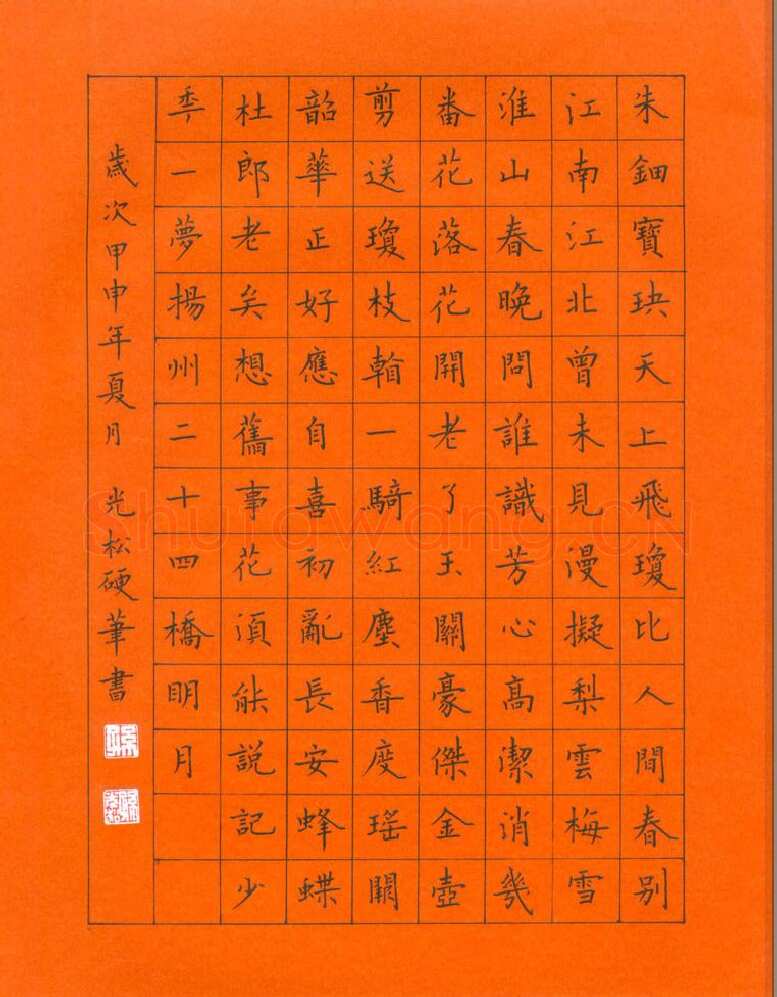 朱鈿寶玦天上飛瓊比人間春别
江南江北曾未見漫擬梨雲梅雪
淮山春晚問誰識芳心高潔消幾
番花落花開老了玉關豪傑金壺
剪送瓊枝一騎紅塵香度瑶闕
韶華正好應自喜初亂長安蜂蝶
杜郎老矣想舊事花須能說記少
秊一夢揚州二十四橋眀月
歲次甲申年夏月 光松硬筆書
Shufawang.CN